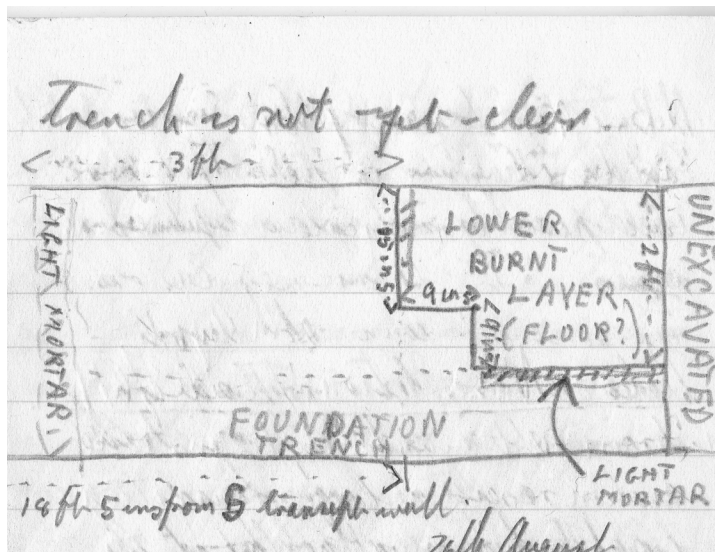 Trench is not -yet- clear.
3 ft
LIGHT MORTAR.
15 ins
LOWER
BURNT
LAYER
(FLOOR?)
9 ins
9 ins
2 ft
UNEXCAVATED
FOUNDATION
TRENCH
LIGHT
MORTAR
18 ft 5 ins from S transept wall.
August